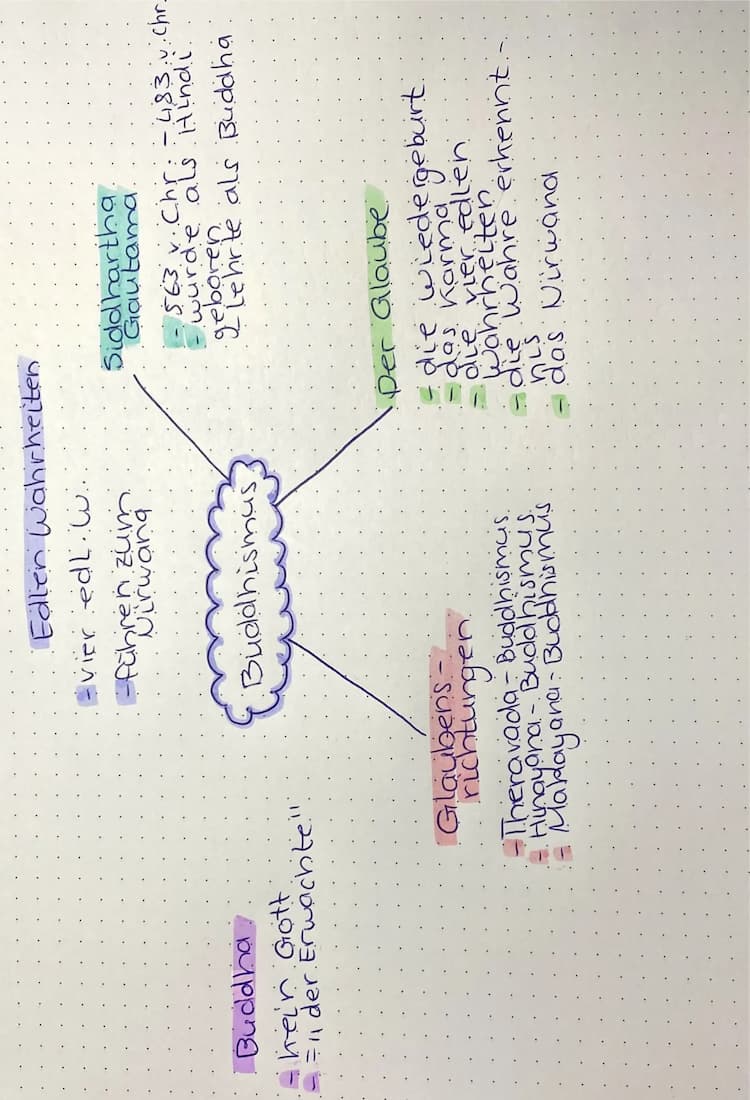 Edlen Wahrheiten
- vier edl. W.
- führen zum
Nirwana
Siddhartha
Gautama
- 563 v. Chr. - 483 v. Chr.
- wurde als Hindi
geboren
lehrte als Buddha
Buddhismus
Buddha
- kein Gott
- = "der Erwachte"
Glaubens-
richtungen
- Theravada-Buddhismus
- Hinayana-Buddhismus
- Mahayana-Buddhismus
Der Glaube
- die Wiedergeburt
- das Karma
- die vier edlen
Wahrheiten
- die wahre erkennt-
nis
- das Nirwana